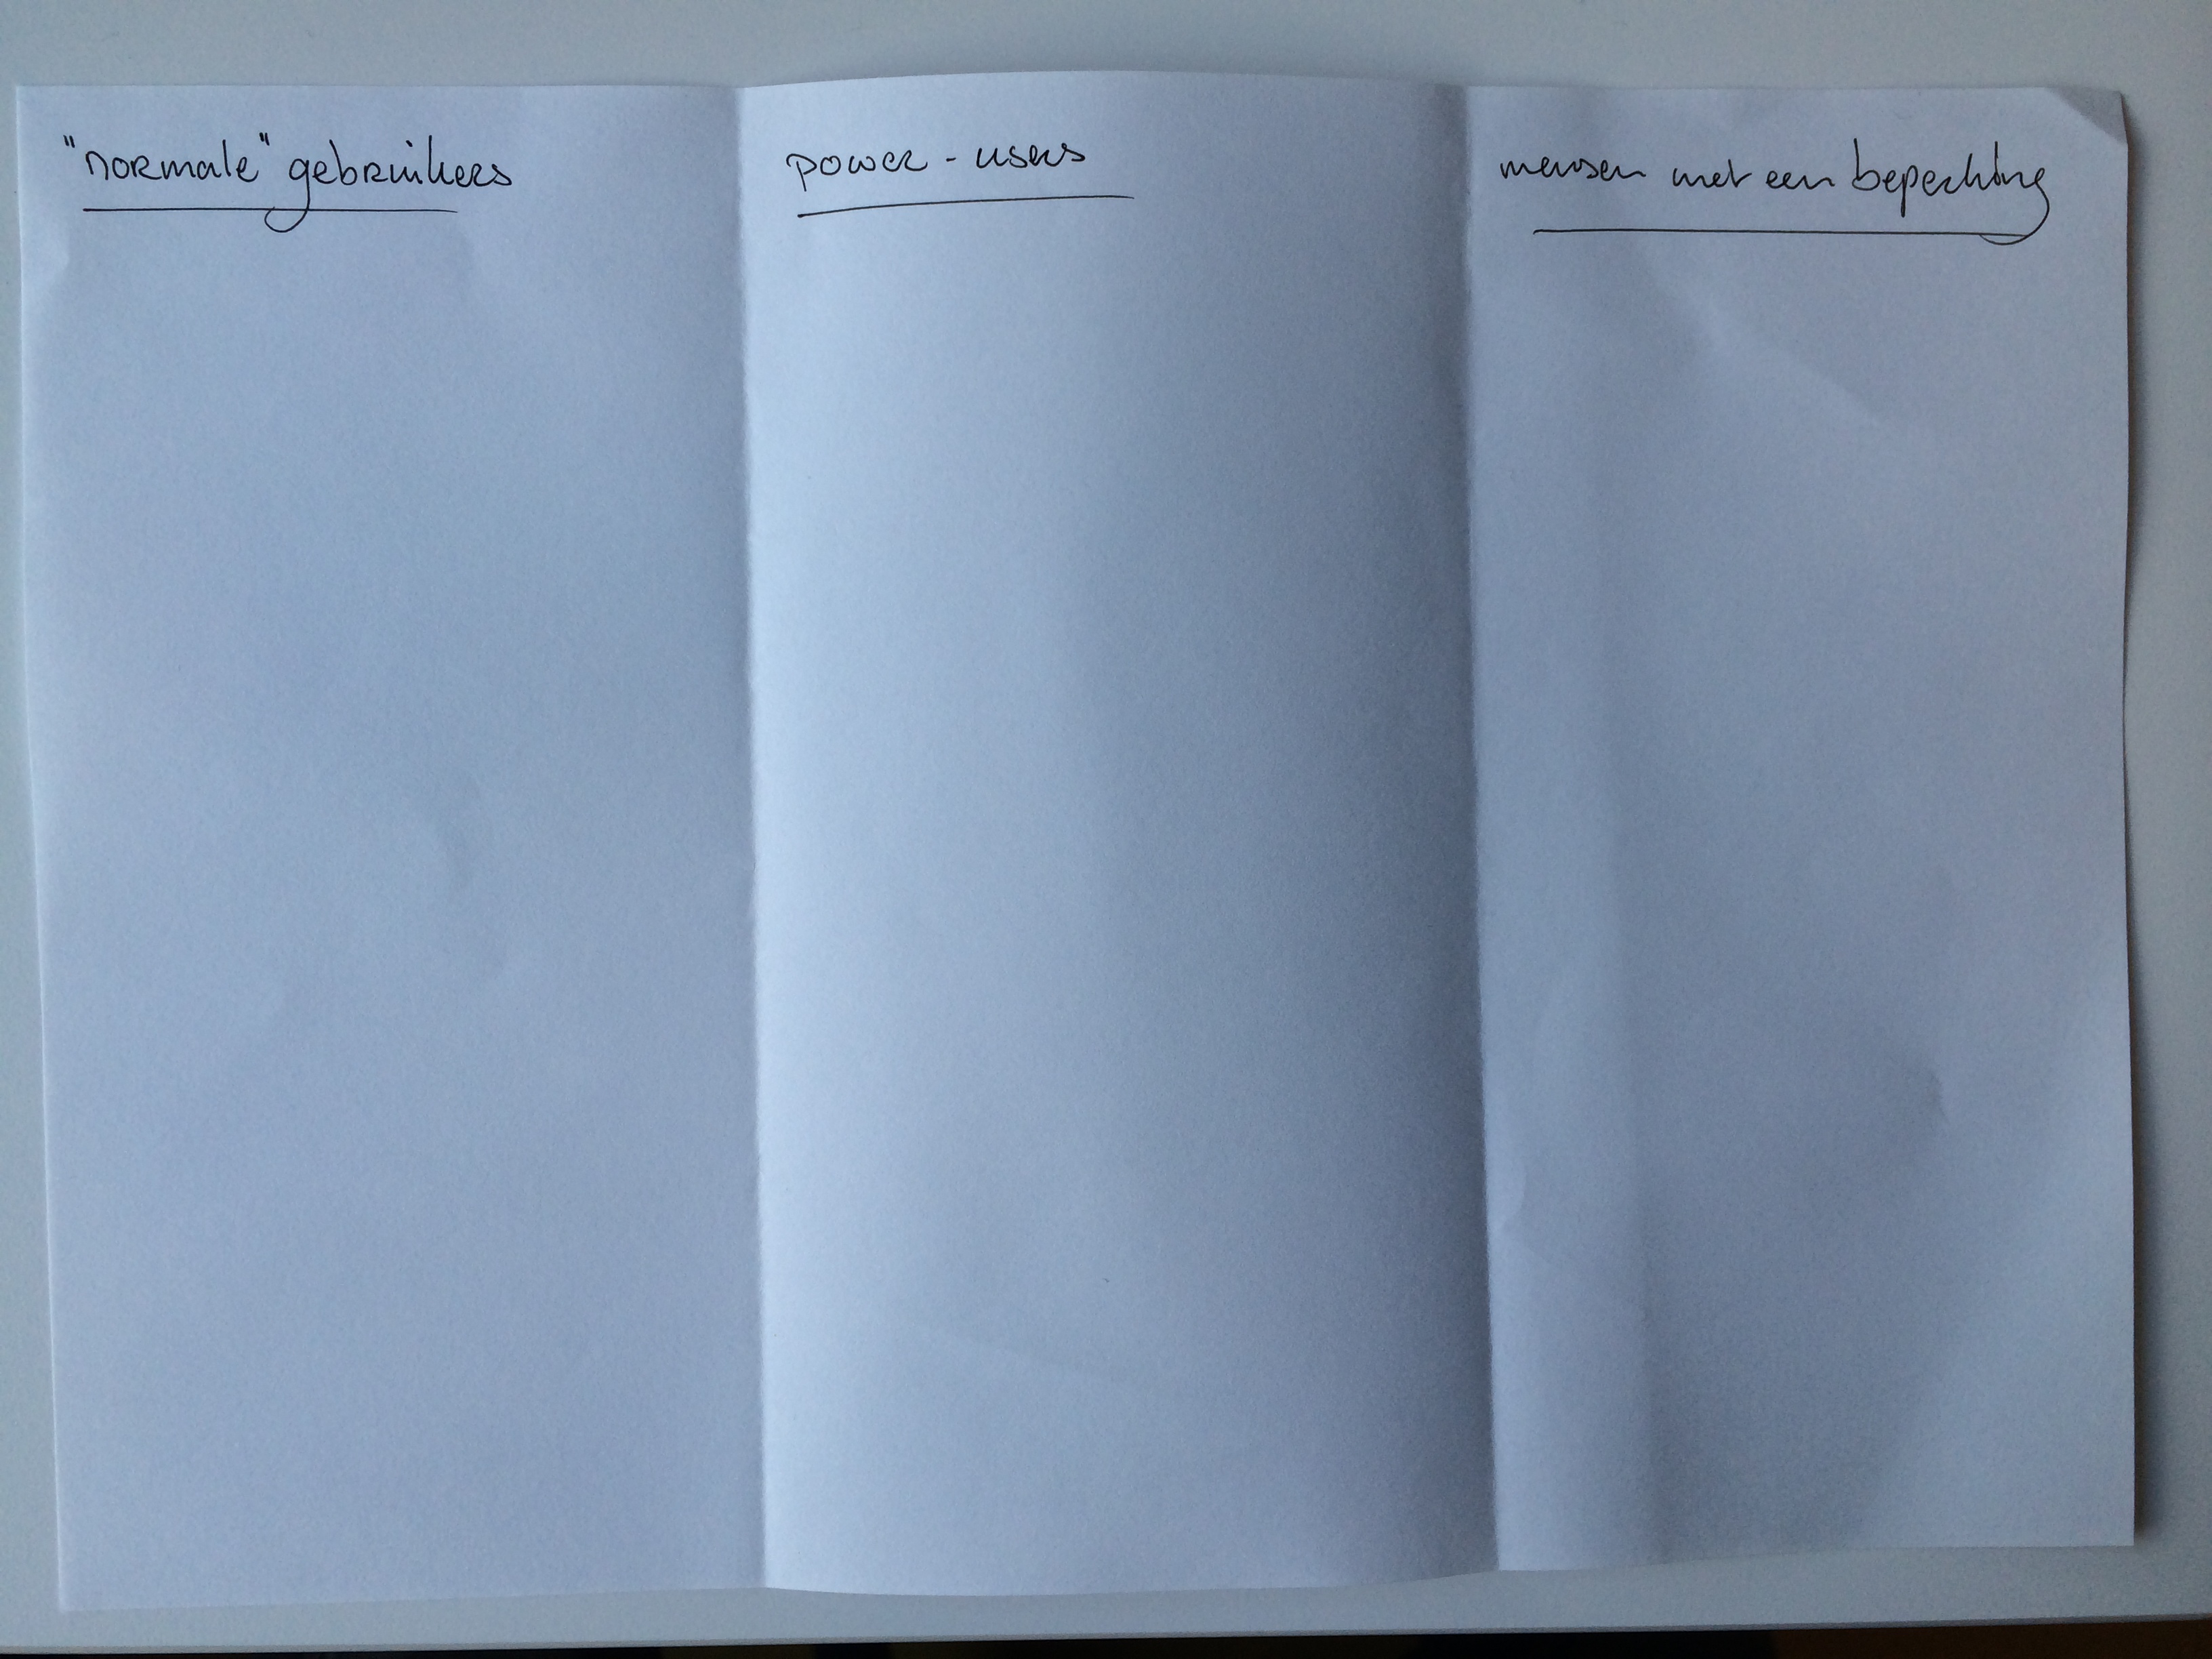 "normale" gebruikers
power - users
mensen met een beperking